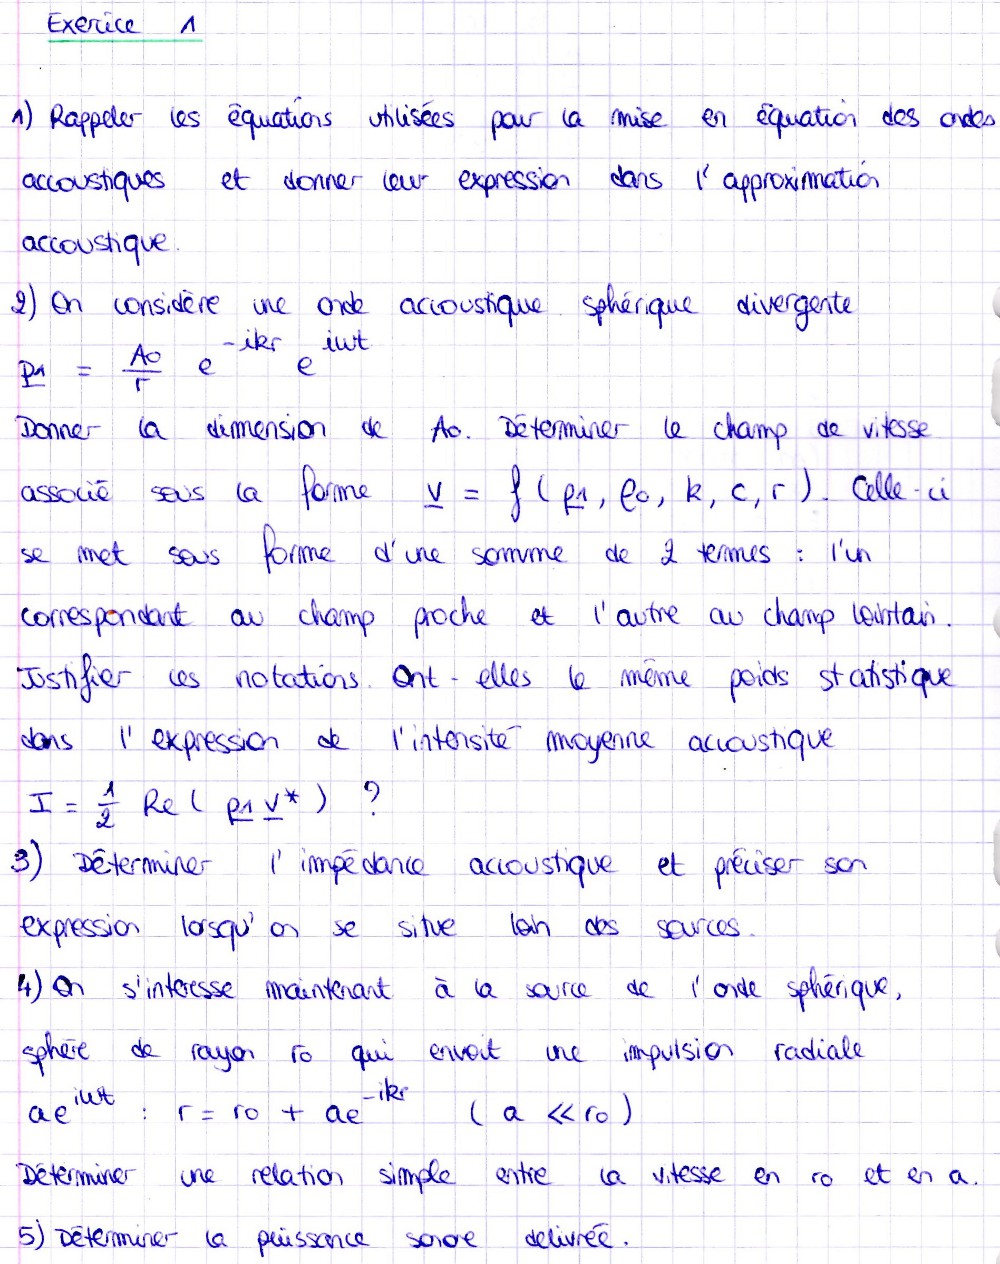 Exercice 1
1) Rappeler les équations utilisées pour la mise en équation des ondes
accoustiques et donner leur expression dans l'approximation
accoustique.
2) On considère une onde accoustique sphérique divergente
p1 = A0/r e^-ikr e^iωt
Donner la dimension de A0. Déterminer le champ de vitesse
associé sous la forme v = f(p1, ρ0, k, c, r). Celle-ci
se met sous forme d'une somme de 2 termes : l'un
correspondant au champ proche et l'autre au champ lointain.
Justifier ces notations. Ont-elles le même poids statistique
dans l'expression de l'intensité moyenne accoustique
I = 1/2 Re( p1 v* ) ?
3) Déterminer l'impédance accoustique et préciser son
expression lorsqu'on se situe loin des sources.
4) On s'intéresse maintenant à la source de l'onde sphérique,
sphère de rayon r0 qui envoit une impulsion radiale
ae^iωt : r = r0 + ae^-ikr ( a ≪ r0 )
Déterminer une relation simple entre la vitesse en r0 et en a.
5) Déterminer la puissance sonore delivrée.